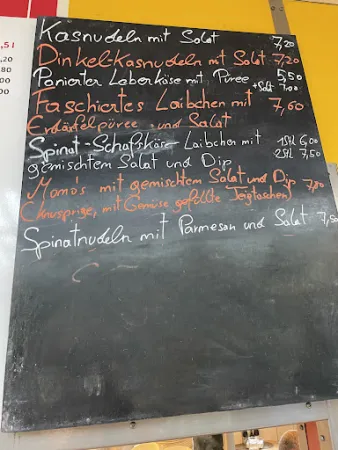 ,5l
,20
80
00
Kasnudeln mit Salat 7,20
Dinkel-Kasnudeln mit Salat 7,20
Panierter Leberkäse mit Püree 5,50
+ Salat 7,00
Faschiertes Laibchen mit 7,60
Erdäpfelpüree und Salat
Spinat-Schafskäse Laibchen mit 1Stk 6,00
gemischtem Salat und Dip 2Stk 7,50
Momos mit gemischtem Salat und Dip 7,80
(knusprige, mit Gemüse gefüllte Teigtaschen)
Spinatnudeln mit Parmesan und Salat